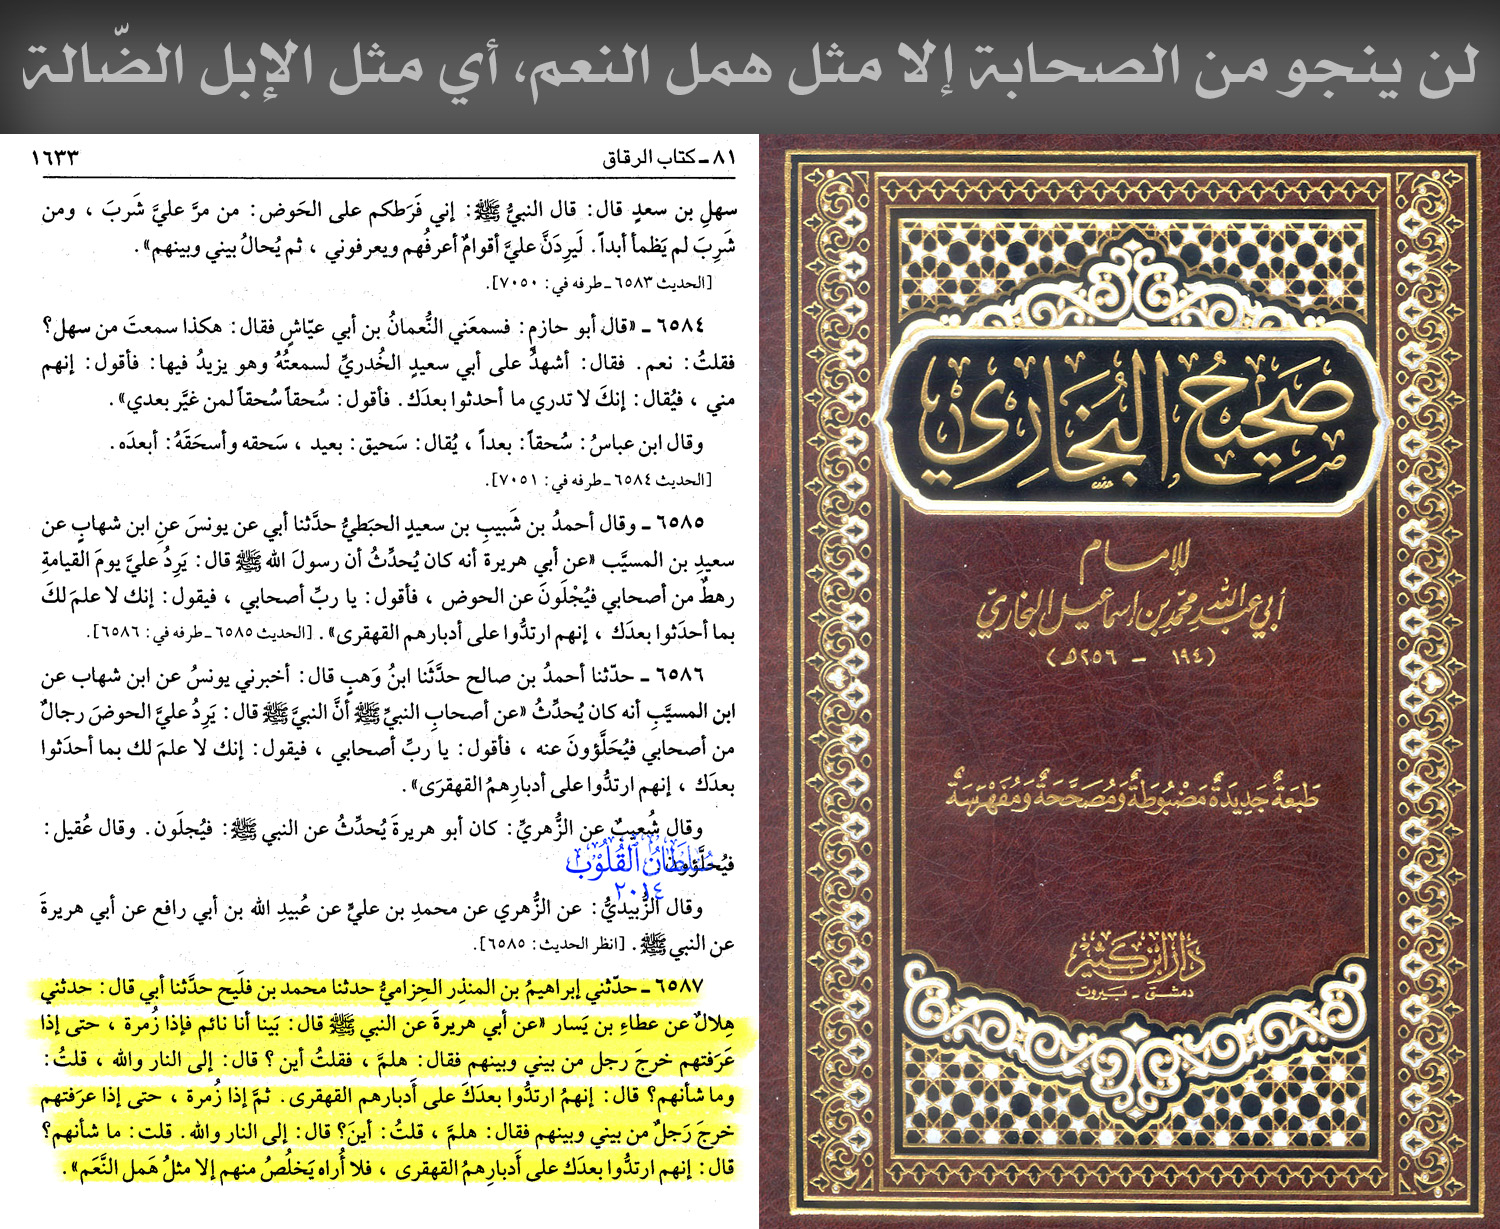 لن ينجو من الصحابة إلا مثل همل النعم، أي مثل الإبل الضّالة
٨١ ـ كتاب الرقاق
١٦٣٣
سهلِ بن سعدٍ قال: قال النبيُّ ﷺ: إني فَرَطكم على الحَوض: من مرَّ عليَّ شَربَ ، ومن
شَرِبَ لم يَظمأ أبداً. لَيرِدَنَّ عليَّ أقوامٌ أعرفُهم ويعرفوني ، ثم يُحالُ بيني وبينهم».
[الحديث ٦٥٨٣ ـ طرفه في: ٧٠٥٠].
٦٥٨٤ ـ «قال أبو حازمٍ: فسمعَني النُّعمانُ بن أبي عيّاشٍ فقال: هكذا سمعتَ من سهل؟
فقلتُ: نعم. فقال: أشهدُ على أبي سعيدٍ الخُدريِّ لسمعتُهُ وهو يزيدُ فيها: فأقول: إنهم
مني ، فيُقال: إنكَ لا تدري ما أحدثوا بعدَك. فأقول: سُحقاً سُحقاً لمن غيَّر بعدي».
وقال ابن عباسُ: سُحقاً: بعداً ، يُقال: سَحيق: بعيد ، سَحقه وأسحَقَهُ: أبعدَه.
[الحديث ٦٥٨٤ ـ طرفه في: ٧٠٥١].
٦٥٨٥ ـ وقال أحمدُ بن شَبيبِ بن سعيدٍ الحبَطيُّ حدَّثنا أبي عن يونسَ عنِ ابن شهابٍ عن
سعيدِ بن المسيَّب «عن أبي هريرة أنه كان يُحدِّثُ أن رسولَ الله ﷺ قال: يَرِدُ عليَّ يومَ القيامةِ
رهطٌ من أصحابي فيُجْلَونَ عن الحوض ، فأقول: يا ربِّ أصحابي ، فيقول: إنك لا علمَ لكَ
بما أحدَثوا بعدَك ، إنهم ارتدُّوا على أدبارهم القهقرى». [الحديث ٦٥٨٥ ـ طرفه في: ٦٥٨٦].
٦٥٨٦ ـ حدّثنا أحمدُ بن صالح حدَّثَنا ابنُ وَهبٍ قال: أخبرني يونسُ عن ابن شهاب عن
ابن المسيَّبِ أنه كان يُحدِّثُ «عن أصحابِ النبيِّ ﷺ أنَّ النبيَّ ﷺ قال: يَرِدُ عليَّ الحوضَ رجالٌ
من أصحابي فيُحَلَّؤونَ عنه ، فأقول: يا ربِّ أصحابي ، فيقول: إنك لا علمَ لك بما أحدَثوا
بعدَك ، إنهم ارتدُّوا على أدبارِهمُ القهقرَى».
وقال شُعيبٌ عن الزُّهريِّ: كان أبو هريرةَ يُحدِّثُ عن النبي ﷺ: فيُجلَون. وقال عُقيل:
فيُحلَّؤون.
سُلطَانُ القُلُوْب
٢٠١٤
وقال الزُّبيديُّ: عن الزُّهري عن محمدِ بن عليٍّ عن عُبيدِ الله بن أبي رافع عن أبي هريرةَ
عن النبي ﷺ. [انظر الحديث: ٦٥٨٥].
٦٥٨٧ ـ حدّثني إبراهيمُ بن المنذِر الحِزاميُّ حدثنا محمد بن فلَيح حدَّثنا أبي قال: حدثني
هِلالٌ عن عطاءِ بن يَسار «عن أبي هريرةَ عن النبي ﷺ قال: بَينا أنا نائم فإذا زُمرة ، حتى إذا
عَرَفتهم خرجَ رجل من بيني وبينهم فقال: هلمَّ ، فقلتُ أين؟ قال: إلى النار والله ، قلتُ:
وما شأنهم؟ قال: إنهمُ ارتدُّوا بعدَكَ على أَدبارهم القهقرى. ثمَّ إذا زُمرة ، حتى إذا عرَفتهم
خرجَ رَجلٌ من بيني وبينهم فقال: هلمَّ ، قلتُ: أينَ؟ قال: إلى النار والله. قلت: ما شأنهم؟
قال: إنهم ارتدُّوا بعدَك على أَدبارِهمُ القهقرى ، فلا أُراه يَخلُصُ منهم إلا مثلُ هَمل النَّعَم».
صَحِيحُ البُخَاري
للإمام
أبي عبد الله محمّد بن اسماعيل البخاريّ
(١٩٤ – ٢٥٦هـ)
طَبعَةٌ جَديدَةٌ مَضبُوطَةٌ وَمُصَحَّحَةٌ وَمُفَهْرَسَةٌ
دَار ابن كثير
دمشق - بيروت